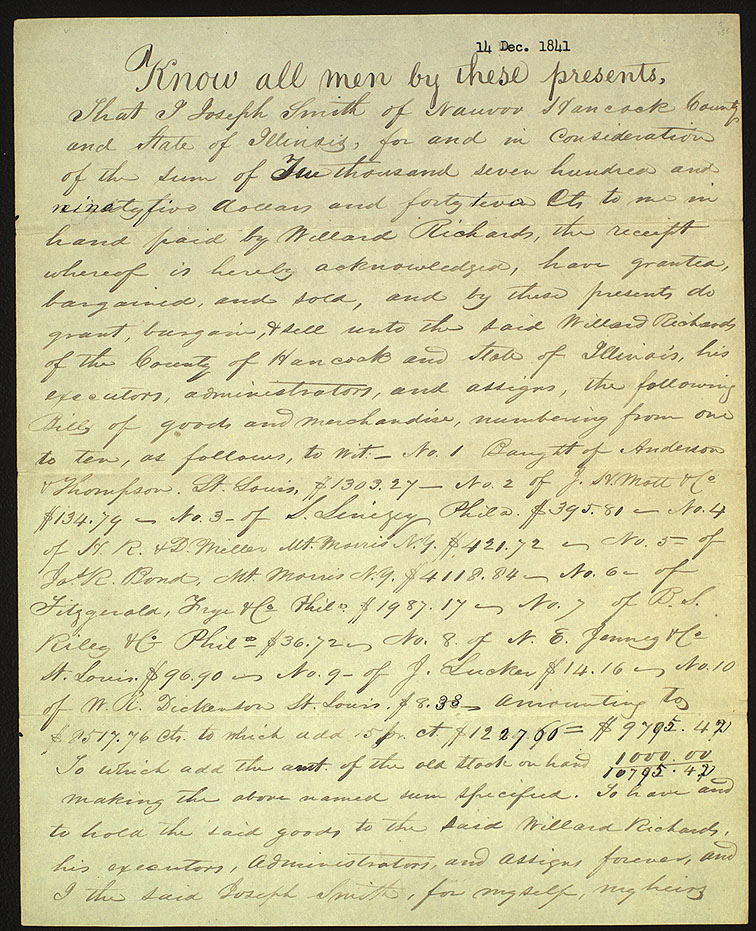 14 Dec. 1841
Know all men by these presents,
That I Joseph Smith of Nauvoo Hancock County
and State of Illinois, for and in Consideration
of the sum of Ten thousand seven hundred and
ninety five dollars and forty two Cts to me in
hand paid by Willard Richards, the receipt
whereof is hereby acknowledged, have granted,
bargained, and sold, and by these presents do
grant, bargain, & sell unto the said Willard Richards
of the County of Hancock and State of Illinois, his
executors, administrators, and assigns, the following
Bills of goods and merchandise, numbering from one
to ten, as follows, to wit:— No. 1 Baught of Anderson
& Thompson. St. Louis, $1303.27 — No. 2 of J. H. Mott & Co
$134.79 — No. 3 — of S. Phila. $395.81 — No. 4
of H. R. & D. Miller Mt. Morris N.Y. $421.72 — No. 5 — of
Jas. R. Bond, Mt Morris N.Y. $4118.84 — No. 6 — of
Fitzgerald, Frye & Co Phila $1987.17 — No. 7 of B. S.
Riley & Co Phila $36.72 — No. 8 of N. E. Janney & Co
St. Louis. $96.90 — No. 9 — of J. Lucker $14.16 — No. 10
of W. R. Dickenson St. Louis. $8.38 — amounting to
$8517.76 Cts. to which add 15 pr. ct. $1227.66 = $9795.42
To which add the amt. of the old Stock on hand 1000.00
10795.42
making the above named sum specified. To have and
to hold the said goods to the said Willard Richards,
his executors, Administrators, and assigns forever, and
I the said Joseph Smith, for myself, my heirs